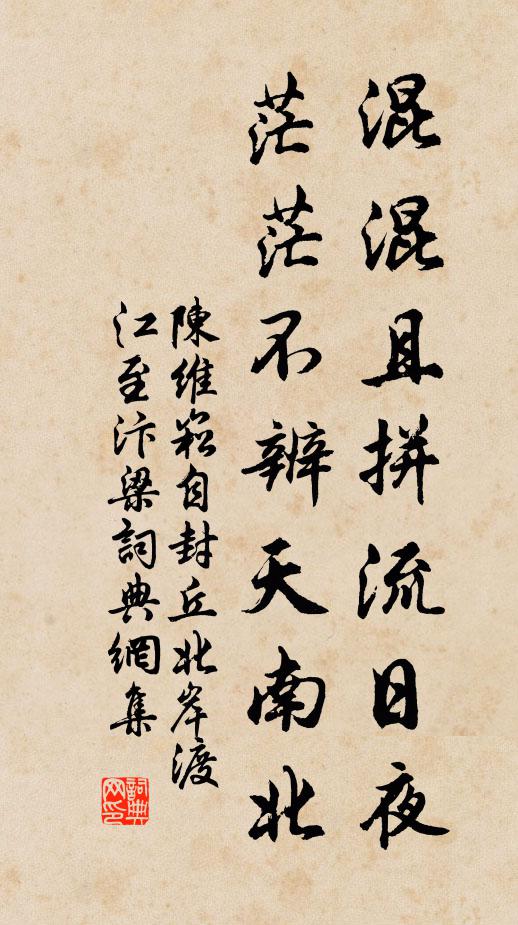 混混且拼流日夜
茫茫不辨天南北
陳維崧自封丘北岸渡
江至汴梁詞典網集
詞典
网印